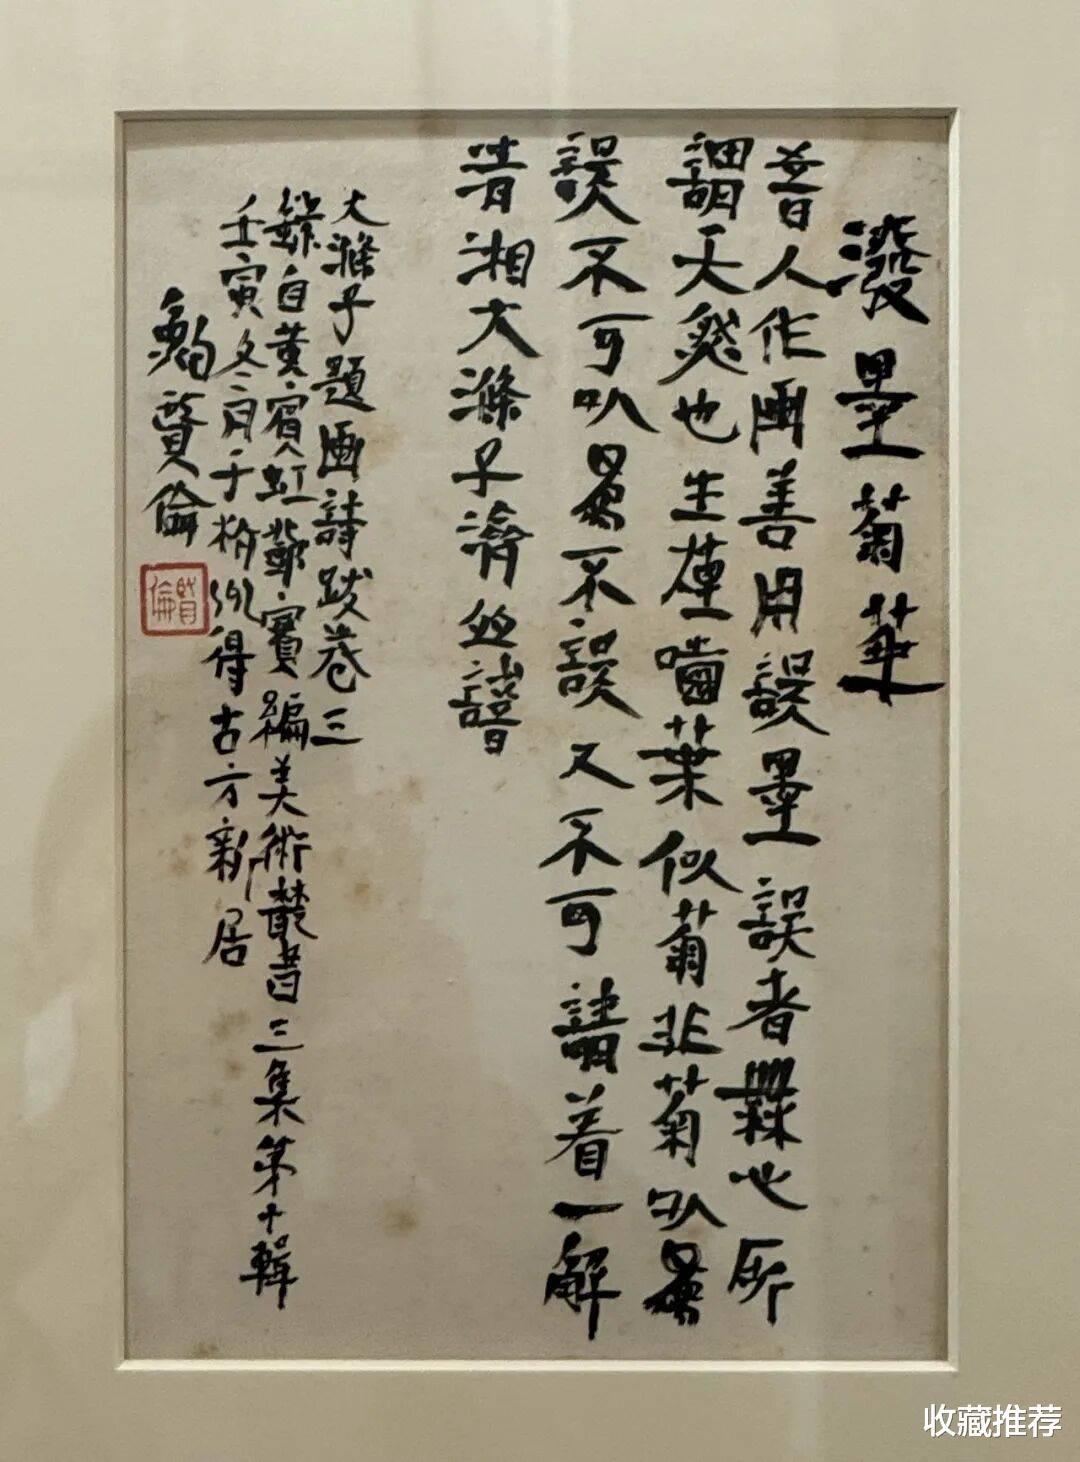 潑墨菊華
昔人作画善用誤墨誤者無心所
謂天然也生葉似菊非菊以為
誤不可以為不誤又不可請着一解
清湘大滌子濟並識
大滌子題画詩跋卷三
錄自黄賓虹鄧實編美術叢書三集第十輯
壬寅冬月于杭州得古方新居
鮑賢倫
賢倫
收藏推荐